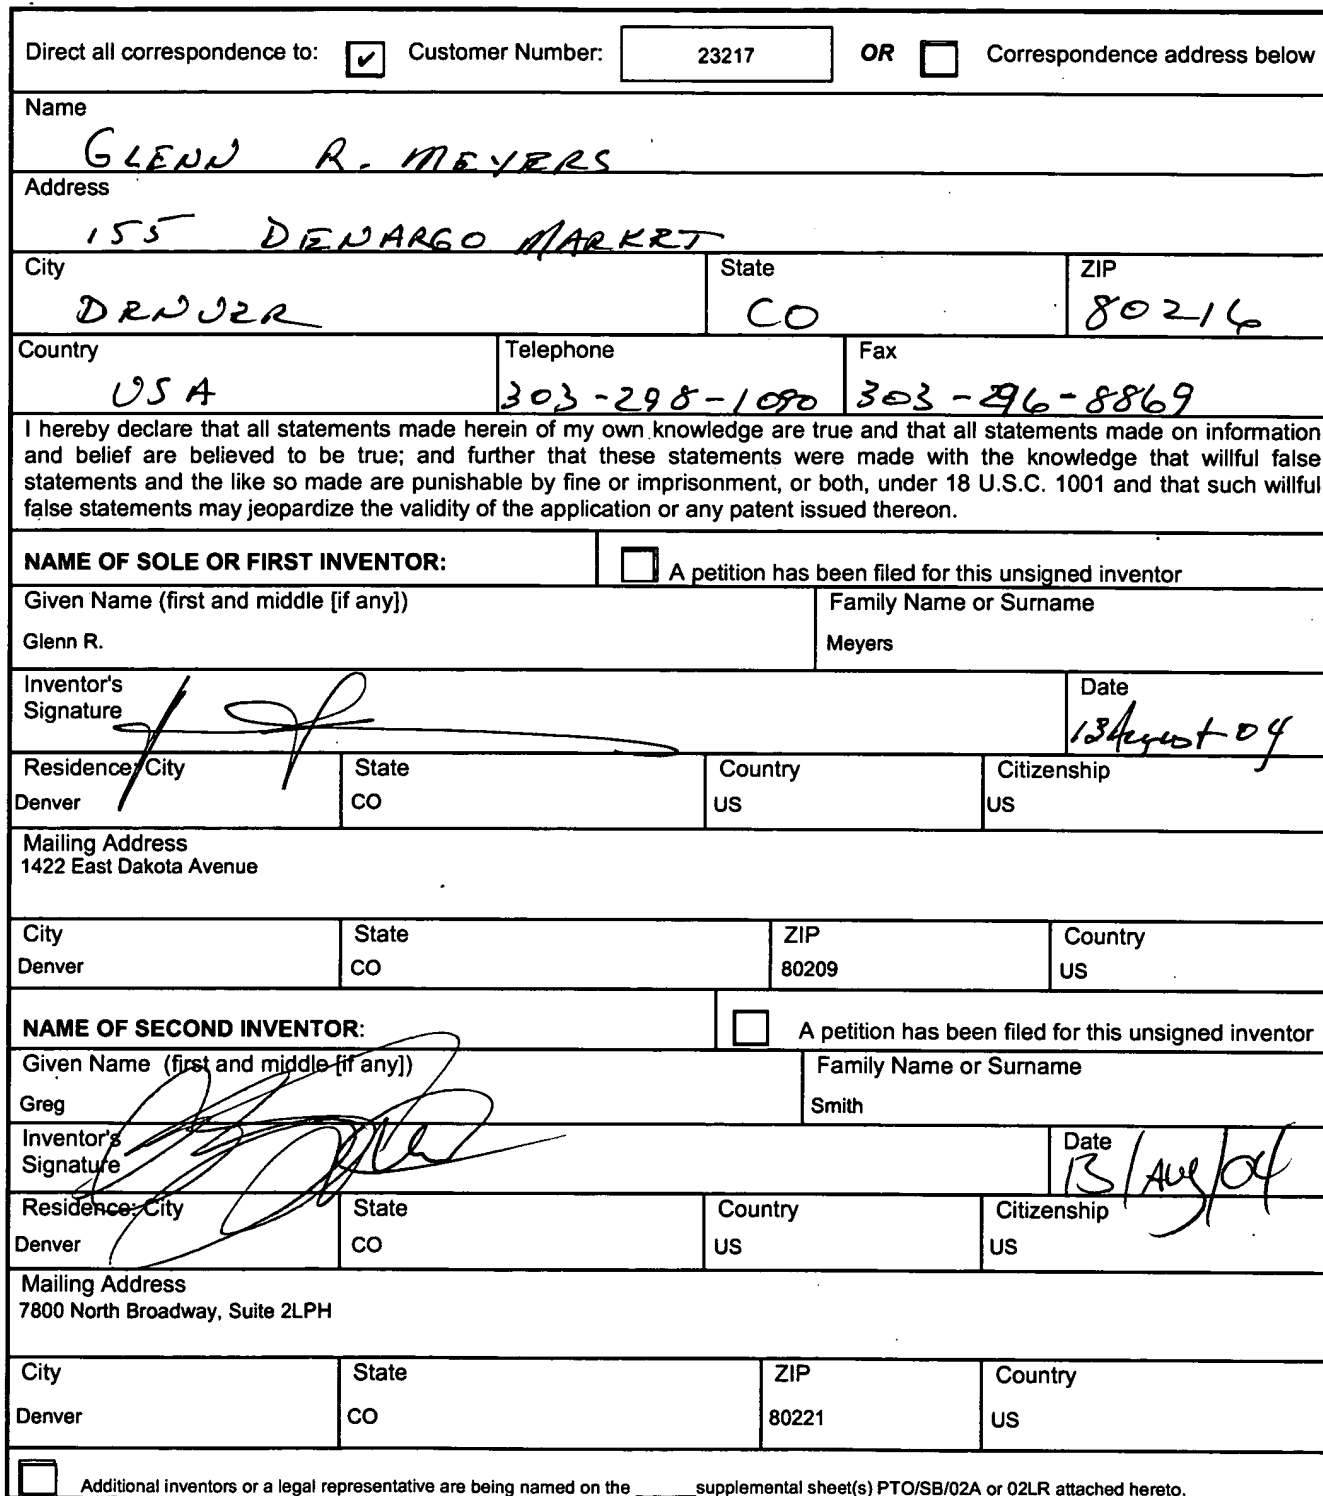 Direct all correspondence to: ✔ Customer Number: 23217 OR Correspondence address below
Name
GLENN R. MEYERS
Address
155 DENARGO MARKET
City State ZIP
DENVER CO 80216
Country Telephone Fax
USA 303-298-1090 303-296-8869
I hereby declare that all statements made herein of my own knowledge are true and that all statements made on information
and belief are believed to be true; and further that these statements were made with the knowledge that willful false
statements and the like so made are punishable by fine or imprisonment, or both, under 18 U.S.C. 1001 and that such willful
false statements may jeopardize the validity of the application or any patent issued thereon.
NAME OF SOLE OR FIRST INVENTOR: A petition has been filed for this unsigned inventor
Given Name (first and middle [if any]) Family Name or Surname
Glenn R. Meyers
Inventor's Date
Signature 13 August 04
Residence: City State Country Citizenship
Denver CO US US
Mailing Address
1422 East Dakota Avenue
City State ZIP Country
Denver CO 80209 US
NAME OF SECOND INVENTOR: A petition has been filed for this unsigned inventor
Given Name (first and middle [if any]) Family Name or Surname
Greg Smith
Inventor's Date
Signature 13/Aug/04
Residence: City State Country Citizenship
Denver CO US US
Mailing Address
7800 North Broadway, Suite 2LPH
City State ZIP Country
Denver CO 80221 US
Additional inventors or a legal representative are being named on the ______ supplemental sheet(s) PTO/SB/02A or 02LR attached hereto.